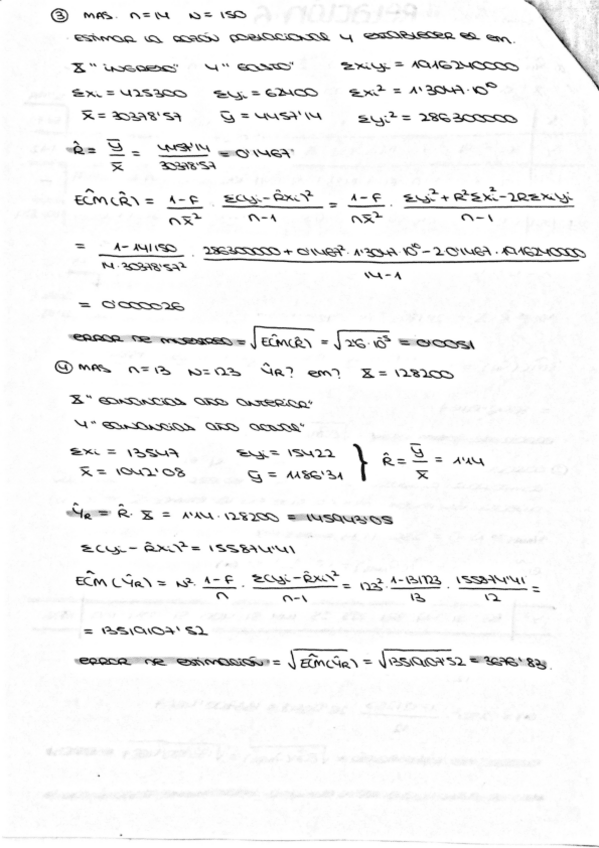 ③ MAS. n=14 N=150
ESTIMAR LA RAZÓN POBLACIONAL Y ESTABLECER EL EM.
X "INGRESO" Y "GASTO" Σxiyi = 1916240000
Σxi = 425300 Σyi = 62400 Σxi² = 1'3047·10¹⁰
x̄ = 30378'57 ȳ = 4457'14 Σyi² = 286300000
R̂ = ȳ/x̄ = 4457'14/30378'57 = 0'1467
ECM̂(R̂) = (1-F)/(nx̄²) · Σ(yi-R̂xi)²/(n-1) = (1-F)/(nx̄²) · (Σyi²+R²Σxi²-2RΣxiyi)/(n-1)
= (1-14/150)/(14·30378'57²) · (286300000+0'1467²·1'3047·10¹⁰-2·0'1467·1916240000)/(14-1)
= 0'000026
ERROR DE MUESTREO = √ECM̂(R̂) = √2'6·10⁻⁵ = 0'0051
④ MAS n=13 N=123 ŶR? EM? X = 128200
X "GANANCIAS AÑO ANTERIOR"
Y "GANANCIAS AÑO ACTUAL"
Σxi = 13547 Σyi = 15422
x̄ = 1042'08 ȳ = 1186'31 } R̂ = ȳ/x̄ = 1'14
ŶR = R̂·X = 1'14·128200 = 145943'05
Σ(yi-R̂xi)² = 155874'41
ECM̂(ŶR) = N²·(1-F)/n · Σ(yi-R̂xi)²/(n-1) = 123²·(1-13/123)/13 · 155874'41/12 =
= 13519107'52
ERROR DE ESTIMACIÓN = √ECM̂(ŶR) = √13519107'52 = 3676'83